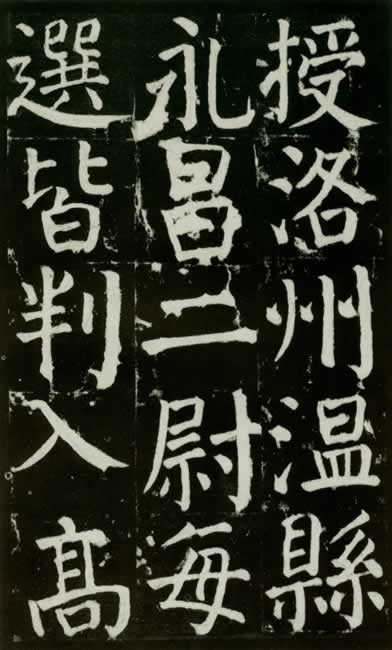 授洛州温縣
永昌二尉每
選皆判入高